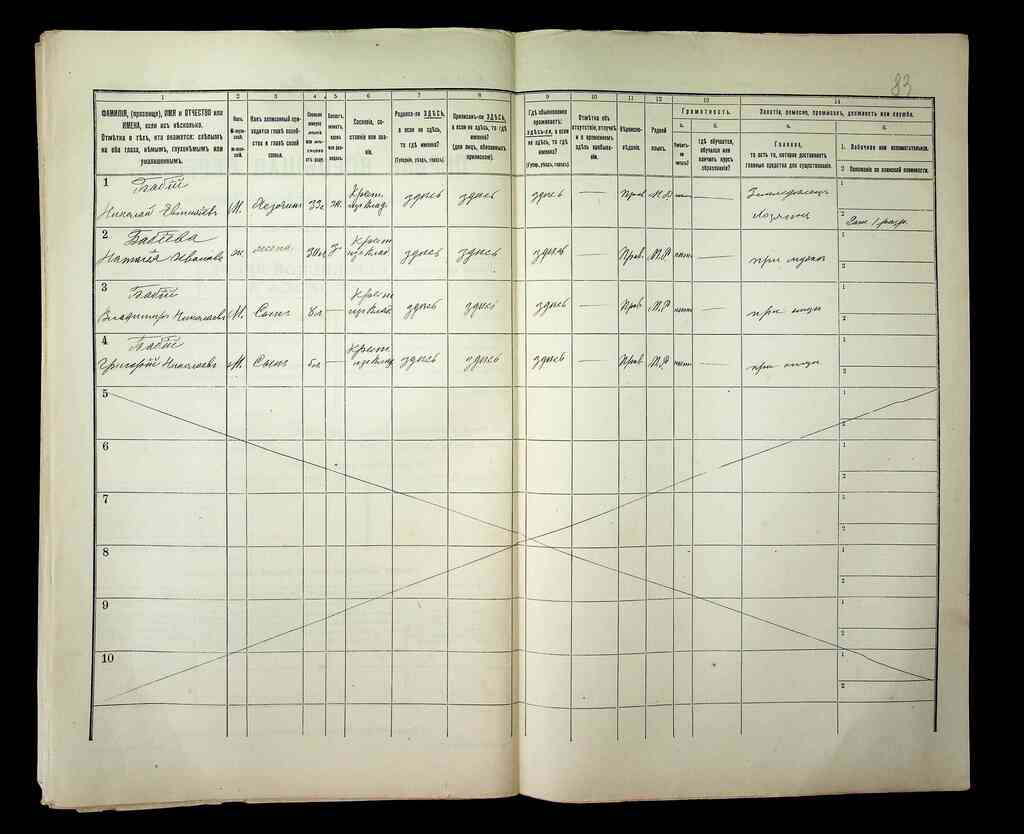 83
1 2 3 4 5 6 7 8 9 10 11 12 13 14
ФАМИЛІЯ, (прозвище), ИМЯ и ОТЧЕСТВО или
ИМЕНА, если ихъ нѣсколько.
Отмѣтка о тѣхъ, кто окажется: слѣпымъ
на оба глаза, нѣмымъ, глухонѣмымъ или
умалишеннымъ.
Полъ.
Какъ записанный при-
ходится главѣ хозяй-
ства и главѣ своей
семьи.
Сословіе, со-
стояніе или зва-
ніе.
Родился-ли ЗДѢСЬ,
а если не здѣсь,
то гдѣ именно?
(Губернія, уѣздъ, городъ).
Приписанъ-ли ЗДѢСЬ,
а если не здѣсь, то гдѣ
именно?
(для лицъ, обязанныхъ
припиской).
Гдѣ обыкновенно
проживаетъ:
здѣсь-ли, а если
не здѣсь, то гдѣ
именно?
(Губер., уѣздъ, городъ).
Отмѣтка объ
отсутствіи, отлучкѣ
и о временномъ
здѣсь пребыва-
ніи.
Вѣроиспо-
вѣданіе.
Родной
языкъ.
Грамотность.
а. б.
Умѣетъ-
ли
читать?
гдѣ обучается,
обучался или
кончилъ курсъ
образованія?
Занятіе, ремесло, промыселъ, должность или служба.
а. б.
Главное,
то есть то, которое доставляетъ
главныя средства для существованія.
1. Побочное или вспомогательное.
2. Положеніе по воинской повинности.
1 Бабій
Николай М. Хозяинъ 33 ж. Крест. здѣсь здѣсь здѣсь — Прав. М.Р. — Земледѣлецъ
хозяинъ
1
2
2 Бабіева
Наталія Иванова ж. жена Крест. здѣсь здѣсь здѣсь — Прав. М.Р. — при мужѣ
1
2
3 Бабій
Владиміръ Николаевъ М. Сынъ 8 — Крест. здѣсь здѣсь здѣсь — Прав. М.Р. — при отцѣ
1
2
4 Бабій
Григорій Николаевъ М. Сынъ — Крест. здѣсь здѣсь здѣсь — Прав. М.Р. — при отцѣ
1
2
5 1
2
6 1
2
7 1
2
8 1
2
9 1
2
10 1
2